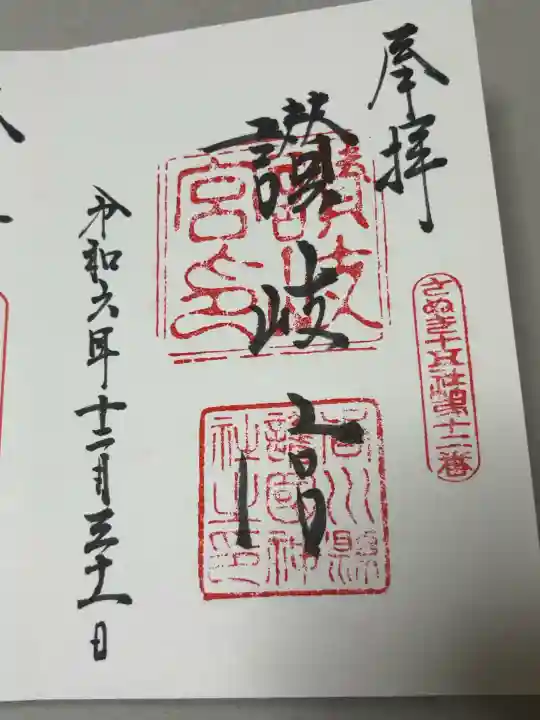 奉拝
さぬき十五社 第十二番
讃岐宮
讃岐宮印
香川縣護國神社之印
令和六年十二月三十一日